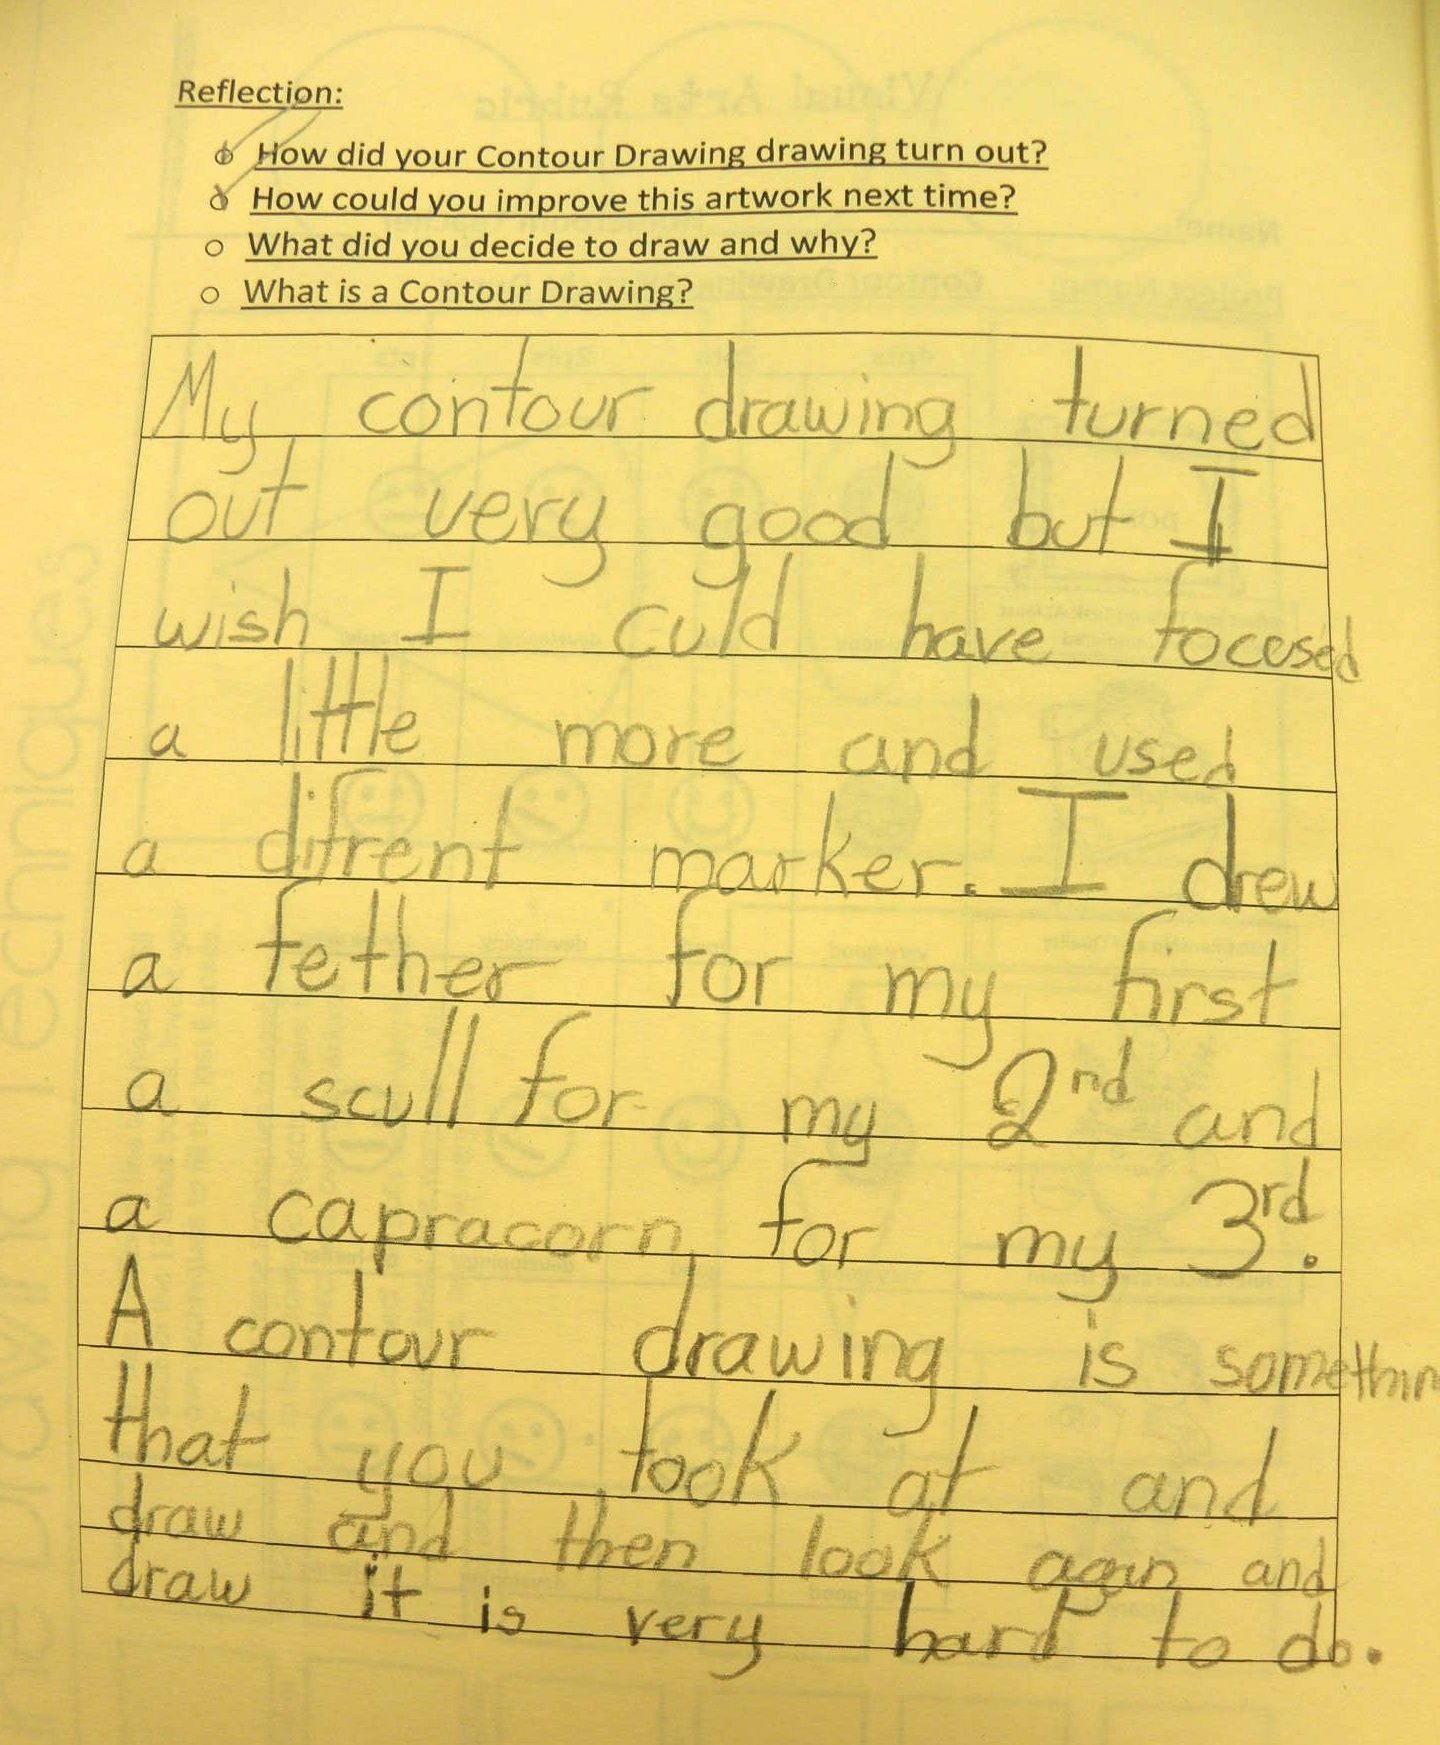 Reflection:
How did your Contour Drawing drawing turn out?
How could you improve this artwork next time?
What did you decide to draw and why?
What is a Contour Drawing?
My contour drawing turned
out very good but I
wish I culd have focused
a little more and used
a difrent marker. I drew
a fether for my first
a scull for my 2nd and
a capracorn for my 3rd.
A contour drawing is somethin
that you look at and
draw and then look agin and
draw it is very hard to do.
Visual Arts Rubric
Drawing Techniques